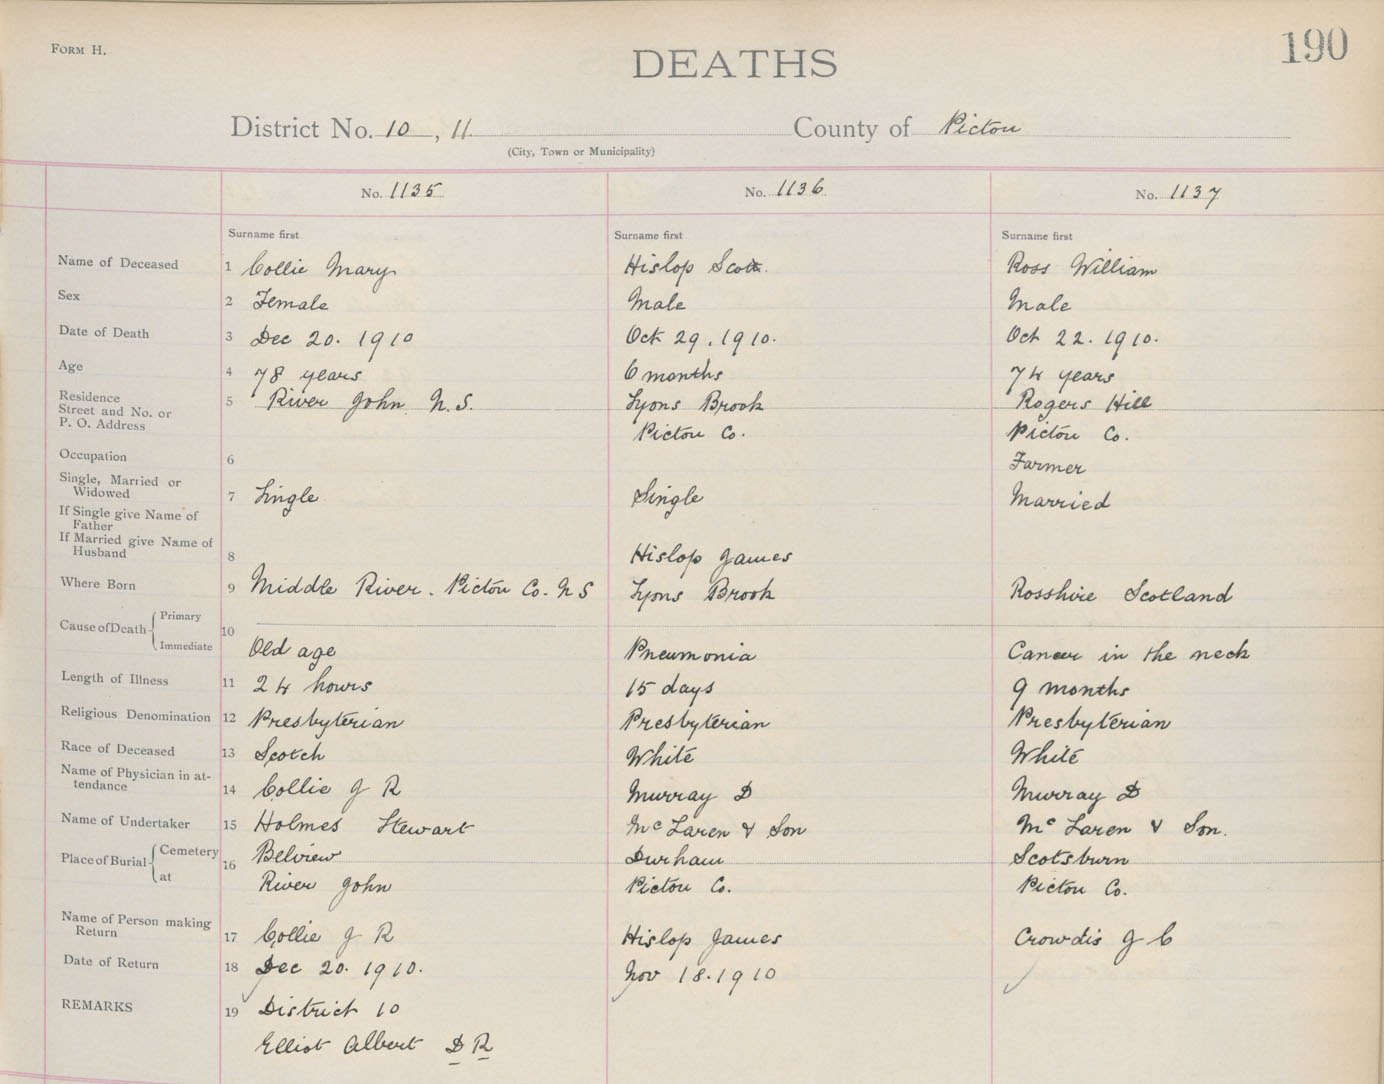 FORM H.
190
DEATHS
District No. 10, 11 County of Pictou
(City, Town or Municipality)
No. 1135 No. 1136 No. 1137
Surname first Surname first Surname first
Name of Deceased 1 Collie Mary Hislop Scott. Ross William
Sex 2 Female Male Male
Date of Death 3 Dec 20. 1910 Oct 29. 1910. Oct 22. 1910.
Age 4 78 years 6 months 74 years
Residence 5 River John N.S. Lyons Brook Rogers Hill
Street and No. or
P. O. Address Pictou Co. Pictou Co.
Occupation 6 Farmer
Single, Married or
Widowed 7 Single Single Married
If Single give Name of
Father
If Married give Name of
Husband 8 Hislop James
Where Born 9 Middle River. Pictou Co. N S Lyons Brook Rosshire Scotland
Cause of Death Primary 10
Immediate Old age Pneumonia Cancer in the neck
Length of Illness 11 24 hours 15 days 9 months
Religious Denomination 12 Presbyterian Presbyterian Presbyterian
Race of Deceased 13 Scotch White White
Name of Physician in at-
tendance 14 Collie J R Murray D Murray D
Name of Undertaker 15 Holmes Stewart McLaren & Son McLaren & Son.
Place of Burial Cemetery 16 Belview Durham Scotsburn
at River John Pictou Co. Pictou Co.
Name of Person making
Return 17 Collie J R Hislop James Crowdis J C
Date of Return 18 Dec 20. 1910. Nov 18. 1910
REMARKS 19 District 10
Elliot Albert D R